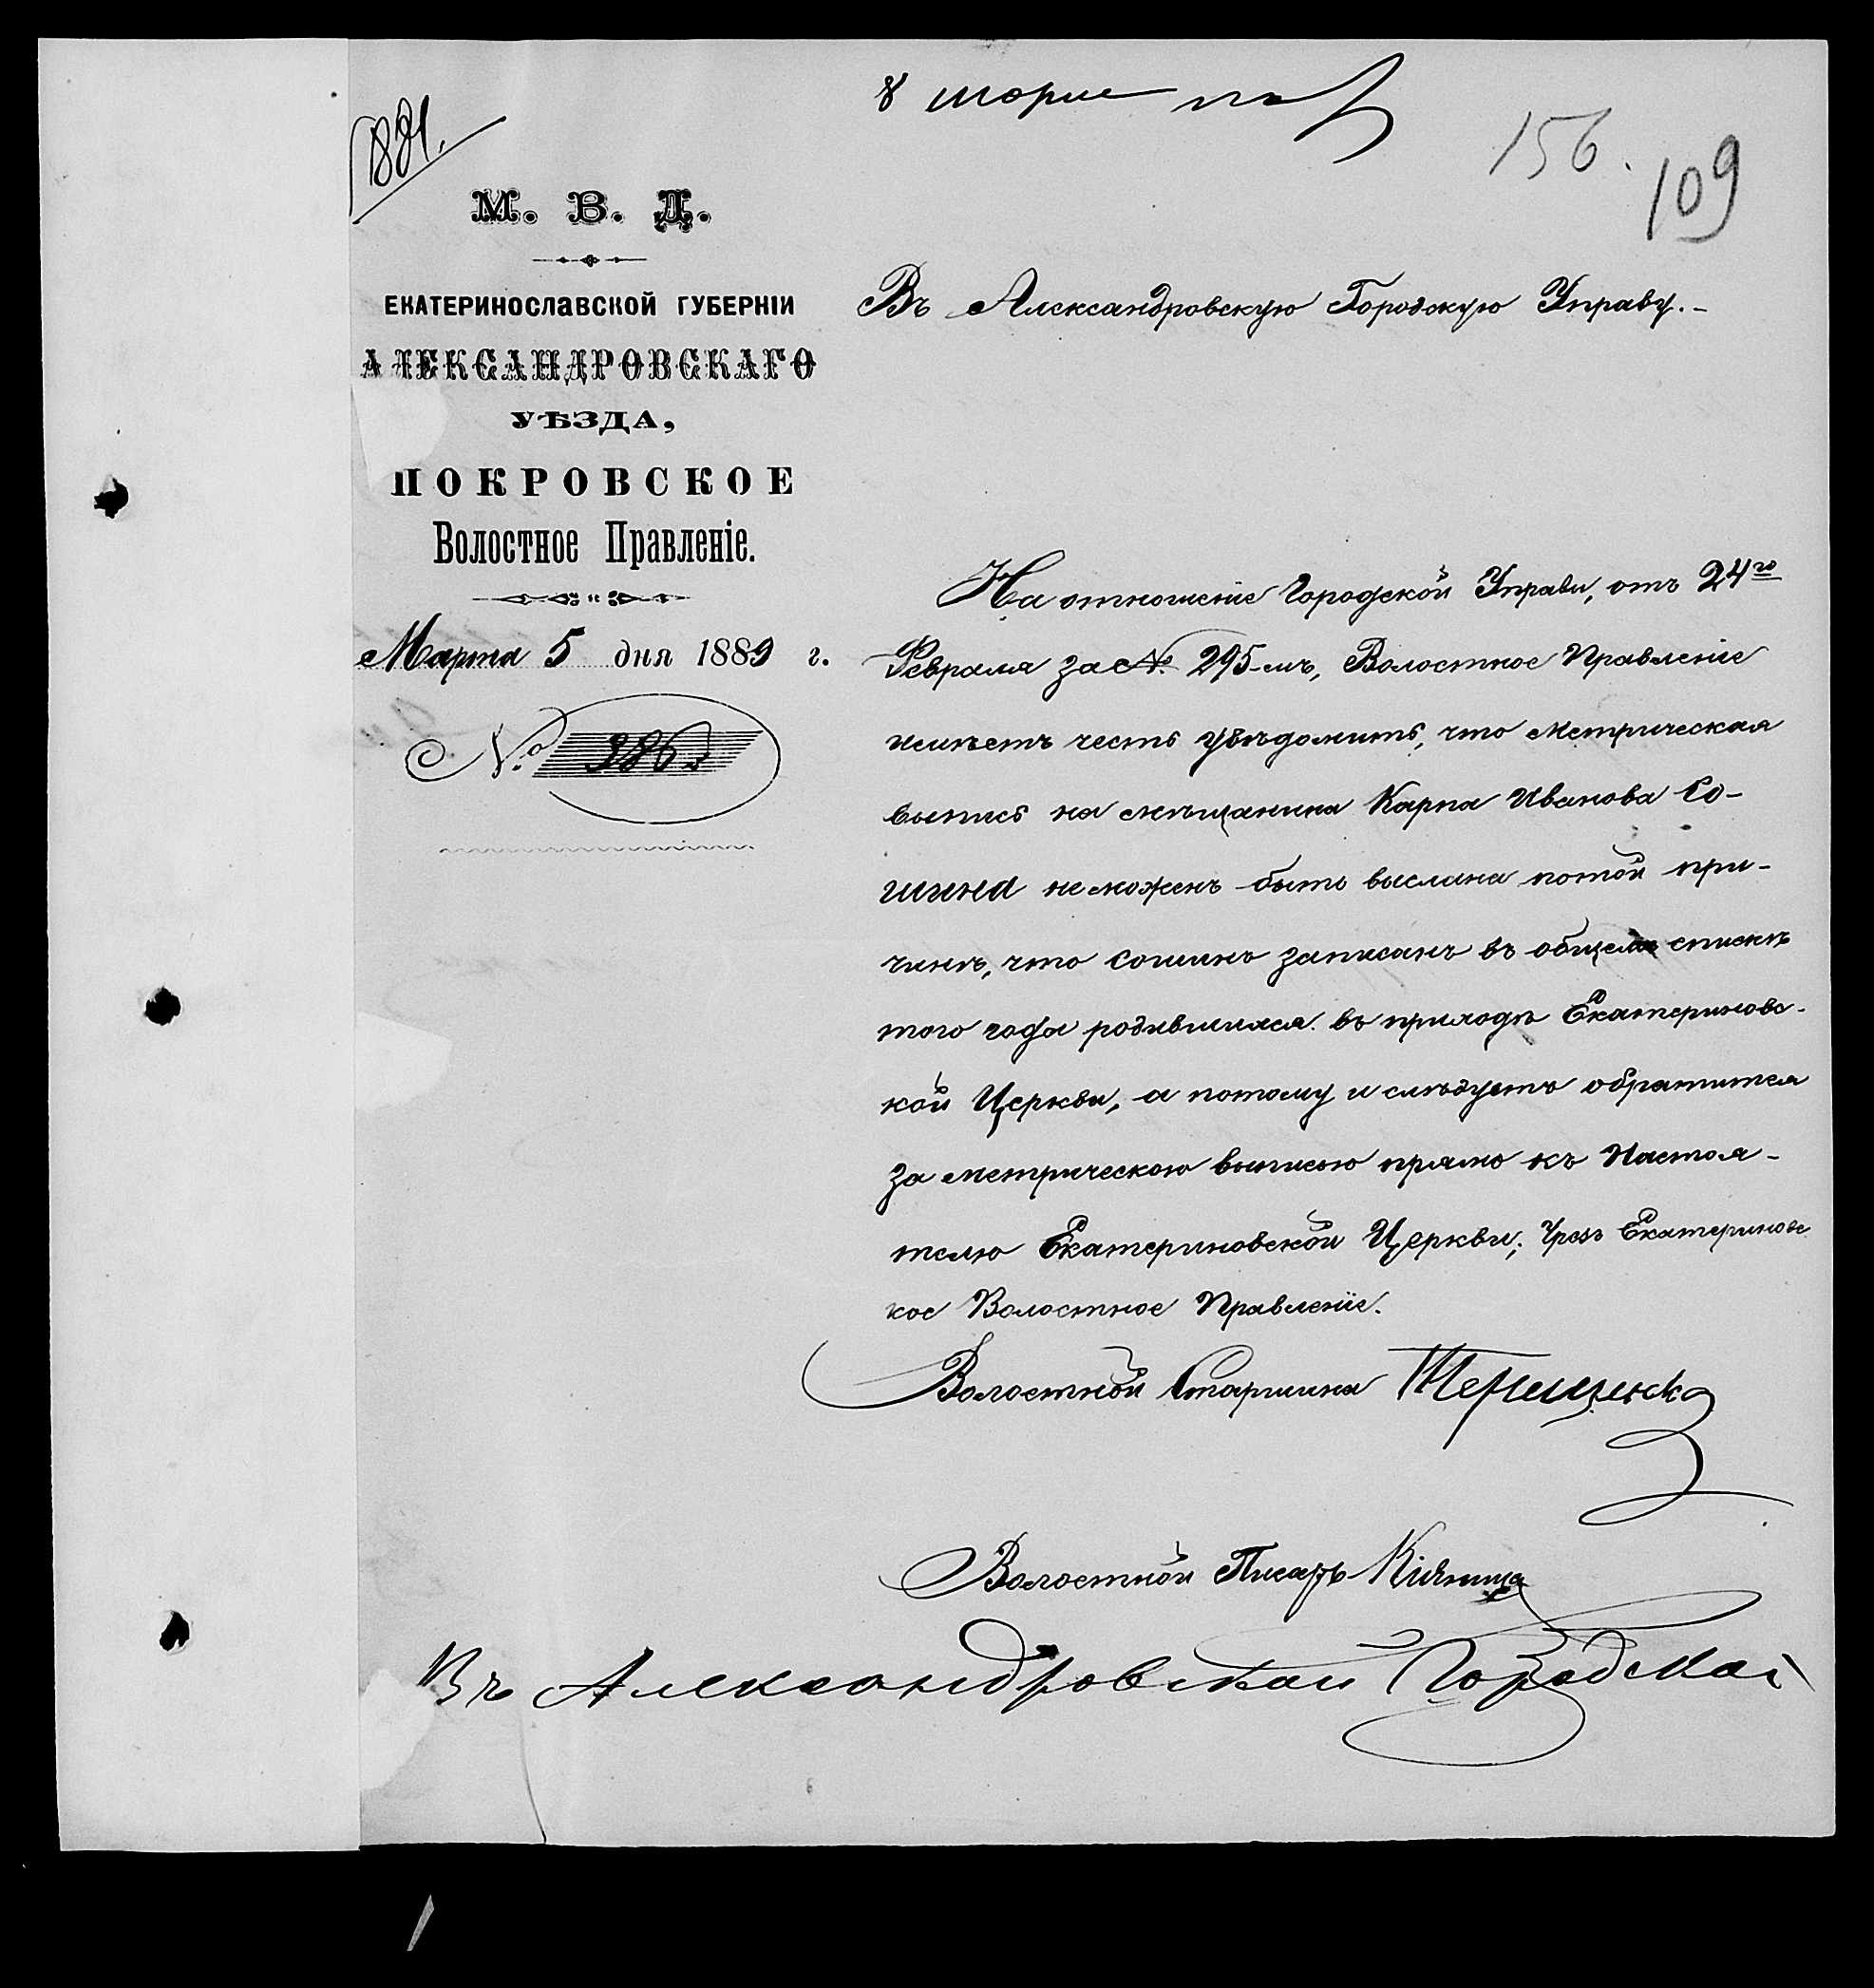 8 марта
1881.
156.
109
М. В. Д.
ЕКАТЕРИНОСЛАВСКОЙ ГУБЕРНІИ
АЛЕКСАНДРОВСКАГО
УѢЗДА,
ПОКРОВСКОЕ
Волостное Правленіе.
Марта 5 дня 1889 г.
№
Въ Александровскую Городскую Управу.-
На отношеніе Городской Управы, отъ 24го
Февраля за № 295-мъ, Волостное Правленіе
имѣетъ честь увѣдомить, что метрическая
выпись на мѣщанина Карпа Иванова Со-
шина не можетъ быть выслана потой при-
чинѣ, что Сошинъ записанъ въ общемъ спискѣ
того года родившихся въ приходѣ Екатериновс-
кой Церкви, а потому и слѣдуетъ обратится
за метрическою выписью прямо къ Настоя-
телю Екатериновской Церкви; Чрезъ Екатериновс
кое Волостное Правленіе.
Волостной Старшина Терещенко
Волостной Писарь
Въ Александровской Городской